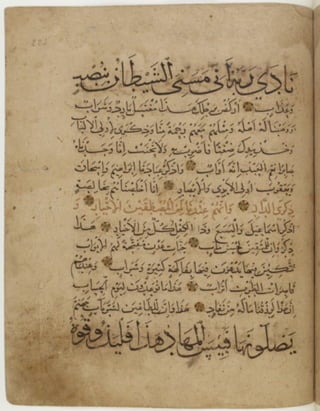 نادى ربه أني مسني الشيطان بنصب
وعذاب اركض برجلك هذا مغتسل بارد وشراب
ووهبنا له أهله ومثلهم معهم رحمة منا وذكرى لأولي الألباب
وخذ بيدك ضغثا فاضرب به ولا تحنث إنا وجدناه
صابرا نعم العبد إنه أواب واذكر عبادنا إبراهيم وإسحاق
ويعقوب أولي الأيدي والأبصار إنا أخلصناهم بخالصة
ذكرى الدار وإنهم عندنا لمن المصطفين الأخيار و
اذكر إسماعيل واليسع وذا الكفل وكل من الأخيار هذا
ذكر وإن للمتقين لحسن مآب جنات عدن مفتحة لهم الأبواب
متكئين فيها يدعون فيها بفاكهة كثيرة وشراب وعندهم
قاصرات الطرف أتراب هذا ما توعدون ليوم الحساب
إن هذا لرزقنا ما له من نفاد هذا وإن للطاغين لشر مآب جهنم
يصلونها فبئس المهاد هذا فليذوقوه